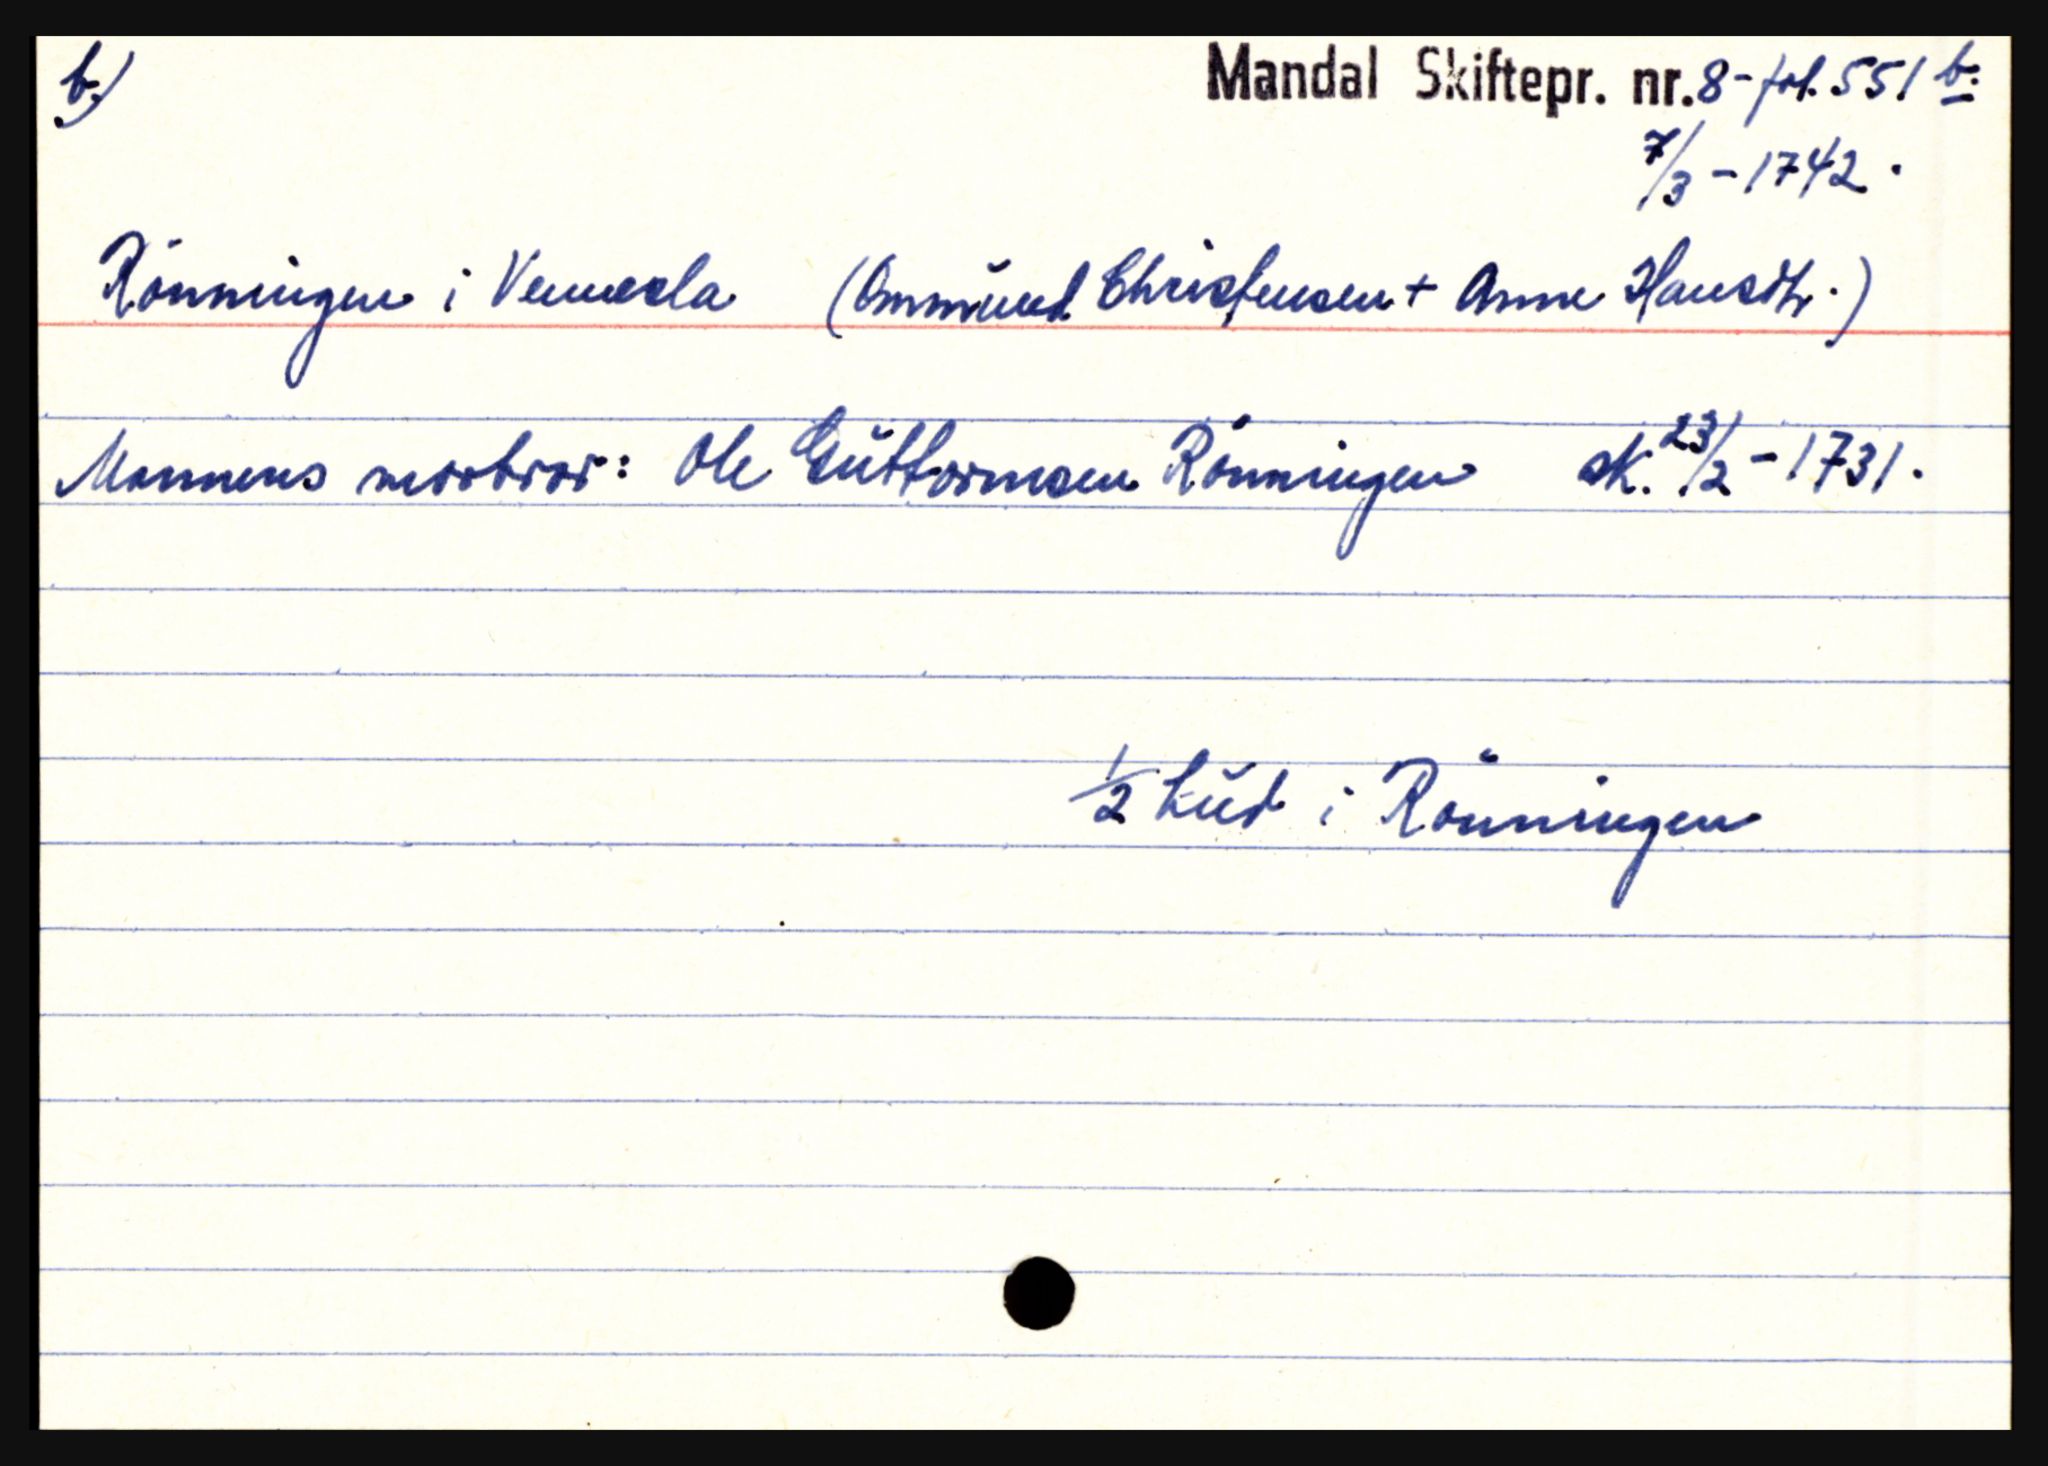 b.)
Mandal Skiftepr. nr. 8 - fol. 551 b.
7/3 - 1742.
Rönningen i Vennesla (Ommŭnd Christensen + Anne Hansdtr.)
Mannens morbror: Ole Gŭttormsen Rönningen sk. 23/2 - 1731.
1/2 hŭd i Rönningen